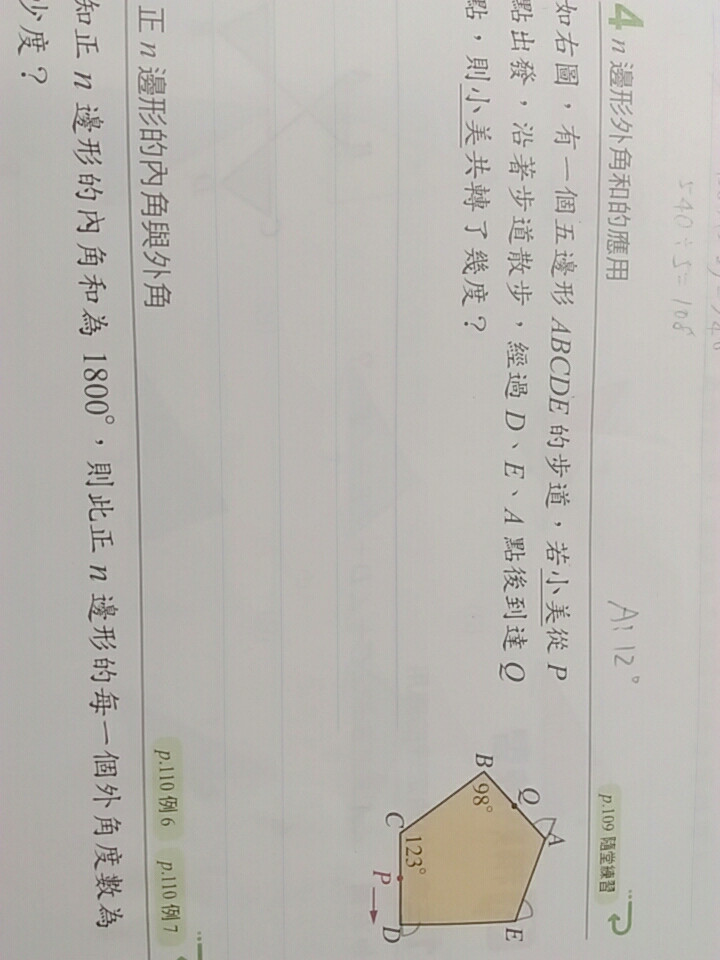 540÷5=108
A: 12°
4 n 邊形外角和的應用
p.109 隨堂練習
如右圖，有一個五邊形 ABCDE 的步道，若小美從 P
點出發，沿著步道散步，經過 D、E、A 點後到達 Q
點，則小美共轉了幾度？
A
Q
E
B
98°
C
123°
P
D
正 n 邊形的內角與外角
p.110 例 6
p.110 例 7
知正 n 邊形的內角和為 1800°，則此正 n 邊形的每一個外角度數為
少度？